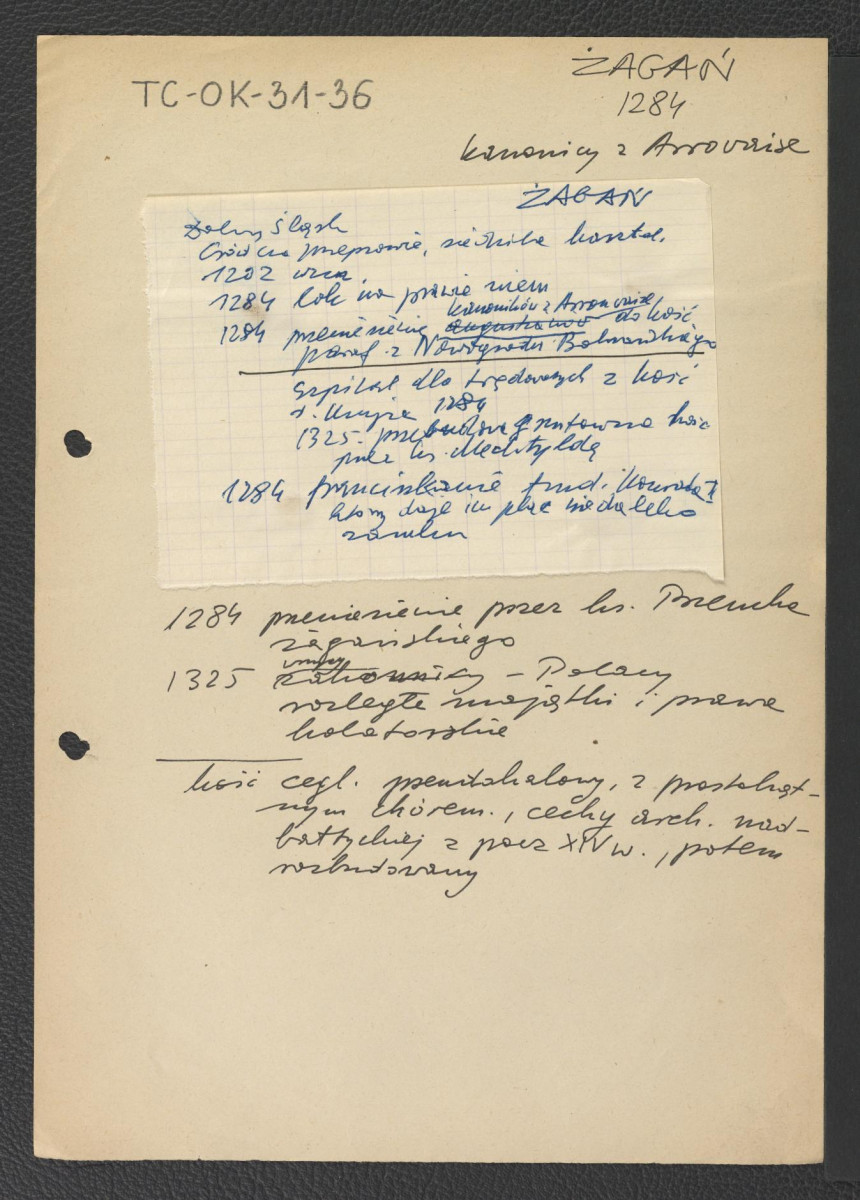 TC-OK-31-36
ŻAGAŃ
1284
kanonicy z Arrovaise
ŻAGAŃ
Dolny Śląsk
Gród na przeprawie, siedziba kasztel.
1202 wzm.
1284 lok na prawie niem
kanoników z Arrovaise
1284 przeniesienie augustianów do kość
paraf. z Nowogrodu Bobrzańskiego
szpital dla trędowatych z kość
1284
1325. przebudowa gruntowna kośc
przez ks. Mechtyldę
1284 franciszkanie fund. Konrada II
który daje im plac niedaleko
zamku
1284 przeniesienie przez ks. Przemka
żagańskiego
1325 zakonnicy – Polacy
rozległe majątki i prawa
kolatorskie
kość cegl. pseudohalowy, z prostokąt-
nym chórem, cechy arch. nad-
bałtyckiej z pocz XIV w., potem
rozbudowany